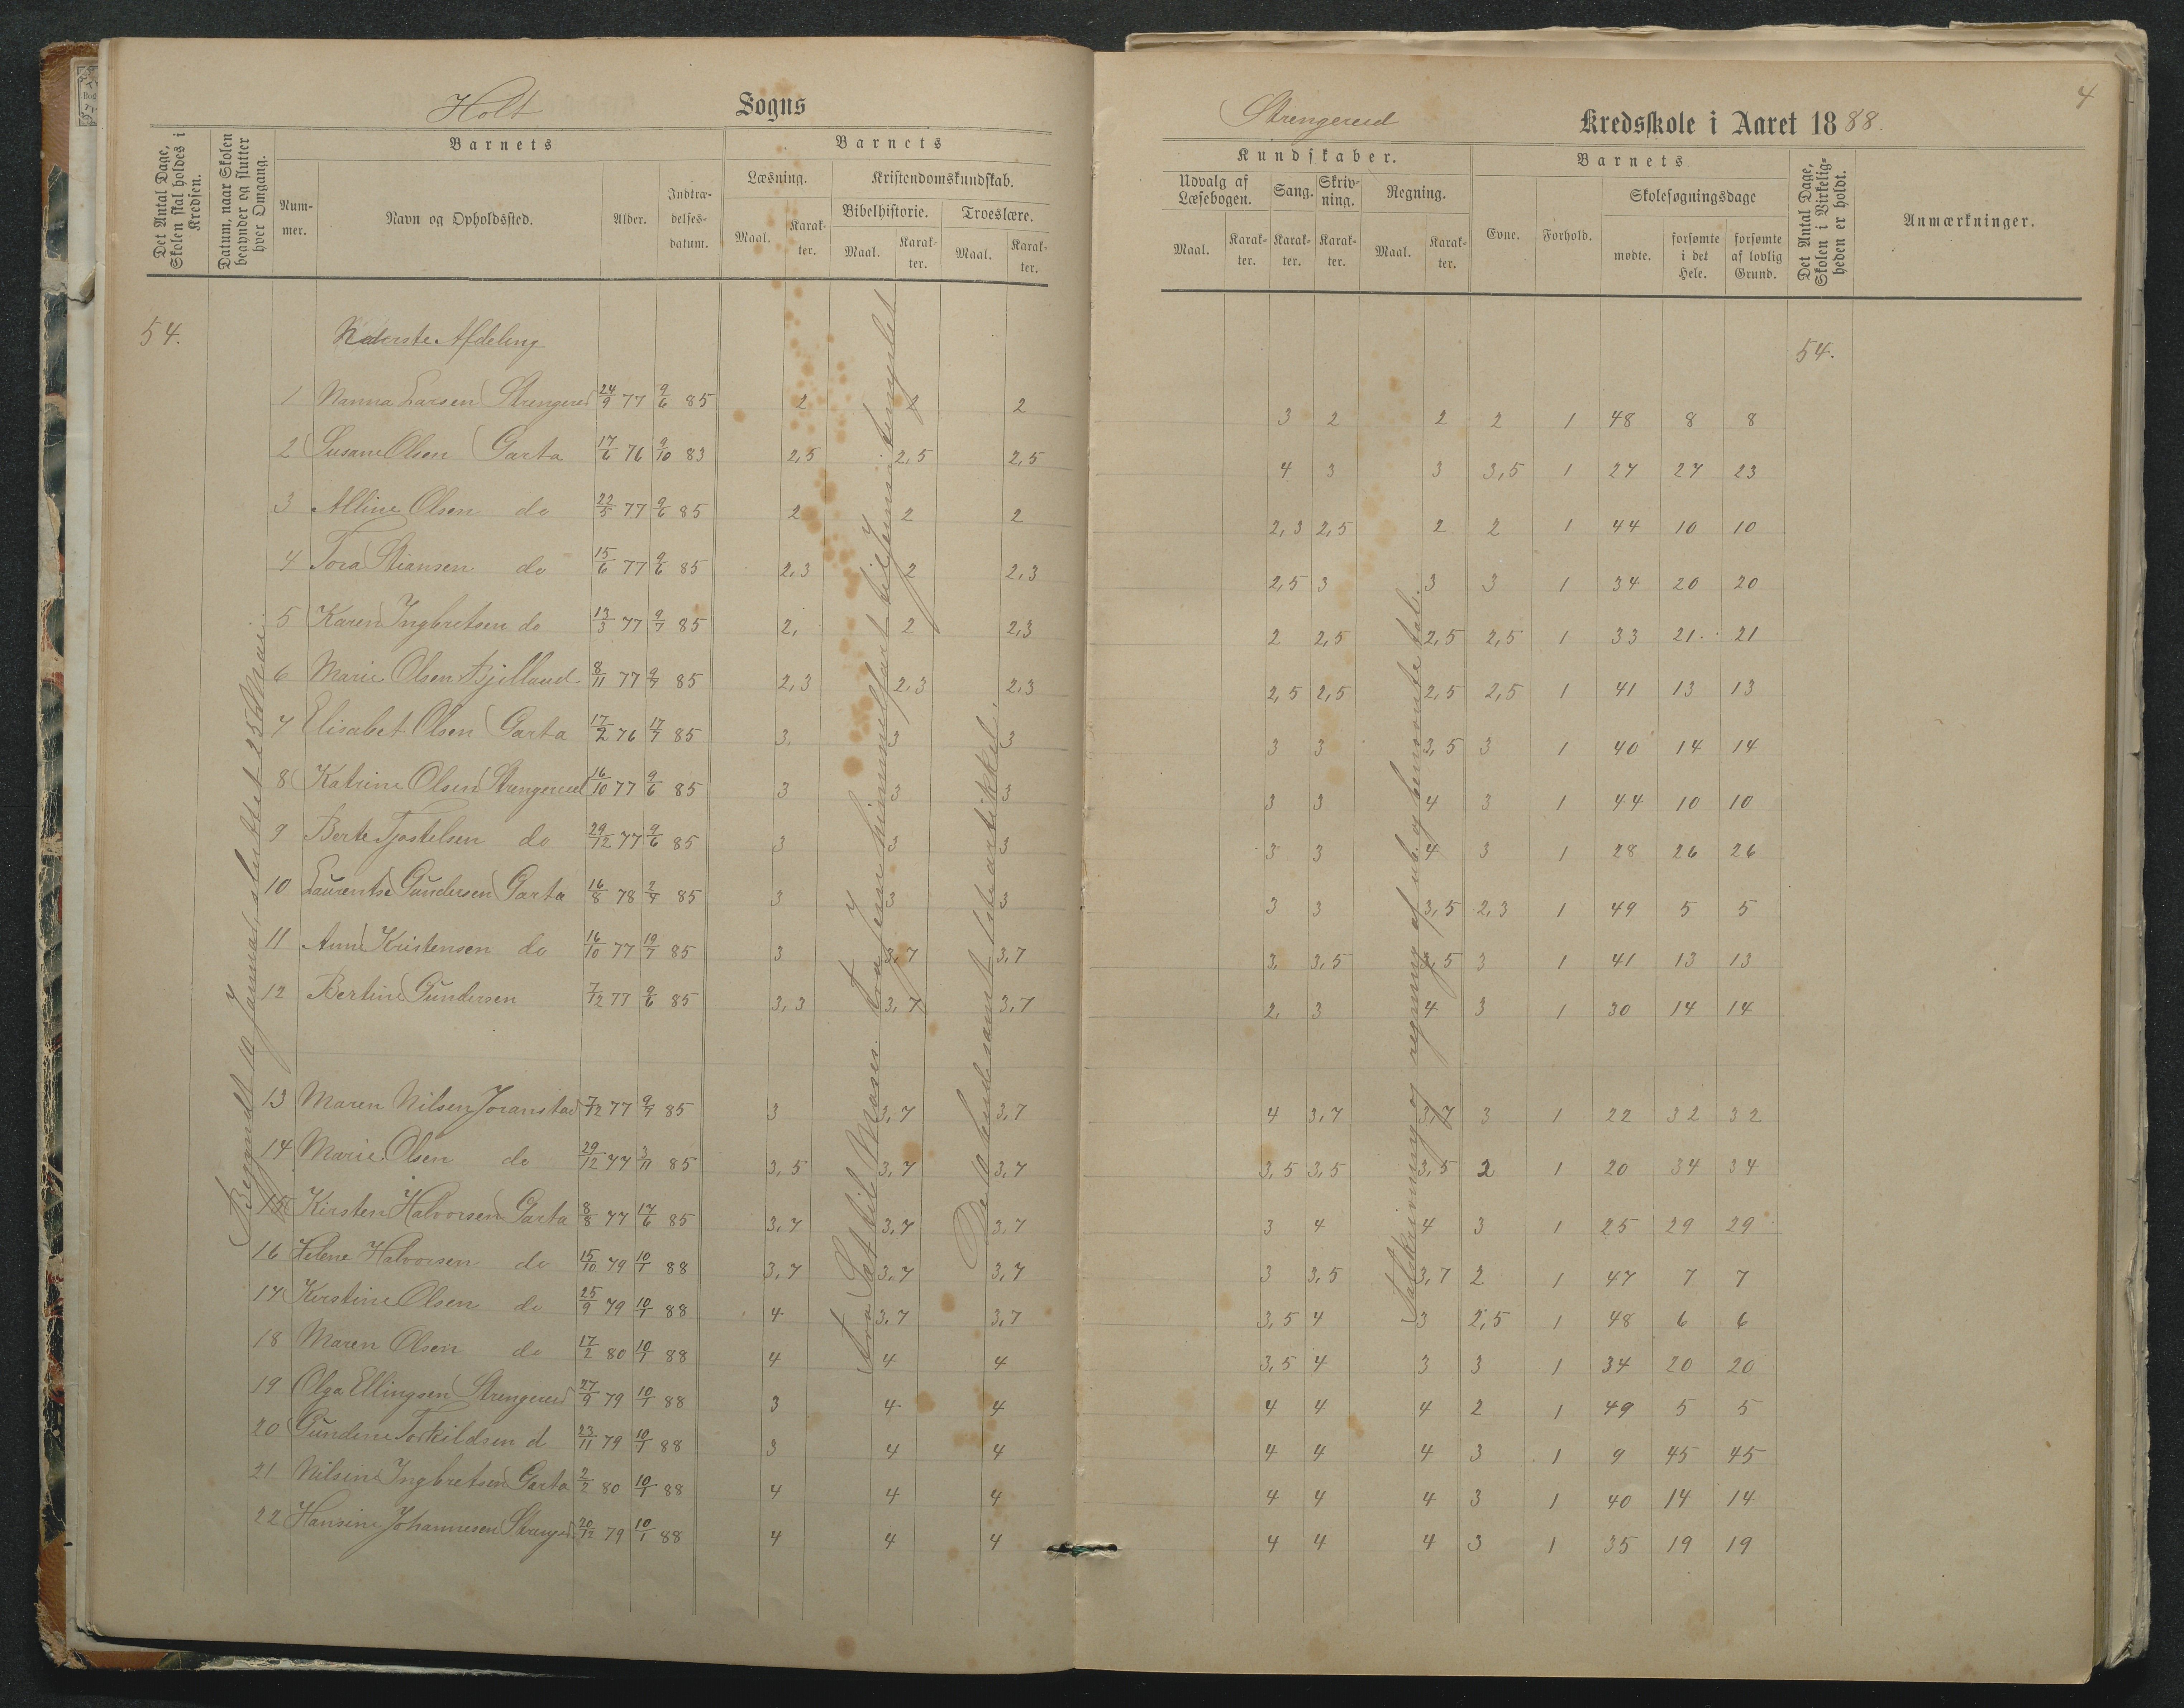 Holt Sogns
Strengereid Kredsskole i Aaret 1888.
4
Det Antal Dage, Skolen skal holdes i Kredsen.
Datum, naar Skolen begynder og slutter hver Omgang.
Barnets
Num-mer.
Navn og Opholdssted.
Alder.
Indtræ-delses-datum.
Barnets
Læsning.
Maal. Karak-ter.
Kristendomskundskab.
Bibelhistorie. Troeslære.
Maal. Karak-ter. Maal. Karak-ter.
Kundskaber.
Udvalg af Læsebogen. Sang. Skriv-ning. Regning.
Maal. Karak-ter. Karak-ter. Karak-ter. Maal. Karak-ter.
Barnets
Evne. Forhold.
Skolesøgningsdage
mødte. forsømte i det Hele. forsømte af lovlig Grund.
Det Antal Dage, Skolen i Virkelig-heden er holdt.
Anmærkninger.
54. Nederste Afdeling 54.
Begyndt 10 Januar, sluttet 25 Mai.
Fra Set til Moses. Fra Jesu himmelfart til
De 10 bud samt 1ste artikkel.
Talskrivning og regning af ub. og benævnte tal.
1 Nanna Larsen Strengereid 24/9 77 9/6 85 2 2 2 3 2 2 2 1 48 8 8
2 Susane Olsen Garta 17/6 76 9/10 83 2,5 2,5 2,5 4 3 3 3,5 1 27 27 23
3 Alline Olsen do 22/5 77 9/6 85 2 2 2 2,3 2,5 2 2 1 44 10 10
4 Tora Stiansen do 15/6 77 9/6 85 2,3 2 2,3 2,5 3 3 3 1 34 20 20
5 Karen Ingbretsen do 13/3 77 9/7 85 2, 2 2,3 2 2,5 2,5 2,5 1 33 21 21
6 Marie Olsen 8/11 77 9/7 85 2,3 2,3 2,3 2,5 2,5 2,5 2,5 1 41 13 13
7 Elisabet Olsen Garta 17/2 76 17/7 85 3, 3 3 3 3 3,5 3 1 40 14 14
8 Katrine Olsen Strengereid 16/10 77 9/6 85 3 3 3 3 3 4 3 1 44 10 10
9 Berte Tjostelsen do 29/12 77 9/6 85 3 3 3 3 3 4 3 1 28 26 26
10 Laurentse Gundersen Garta 16/8 78 2/7 85 3 3 3 3 3 3,5 2,3 1 49 5 5
11 Anne Kristensen do 16/10 77 19/7 85 3 3,7 3,7 3, 3,5 3,5 3 1 41 13 13
12 Bertine Gundersen 7/12 77 9/6 85 3,3 3,7 3,7 2, 3 4 3 1 30 14 14
13 Maren Nilsen Joranstad 7/12 77 9/7 85 3 3,7 3,7 4 3,7 3,7 3 1 22 32 32
14 Marie Olsen do 29/12 77 3/11 85 3,5 3,7 3,7 3,5 3,5 3,5 2 1 20 34 34
15 Kirsten Halvorsen Garta 8/8 77 17/6 85 3,7 3,7 3,7 3 4 4 3 1 25 29 29
16 Helene Halvorsen do 15/10 79 10/1 88 3,7 3,7 3,7 3 3,5 3,7 2 1 47 7 7
17 Kirstine Olsen do 25/9 79 10/1 88 4 3,7 3,7 3,5 4 3 2,5 1 48 6 6
18 Maren Olsen do 17/2 80 10/1 88 4 4 4 3,5 4 3 3 1 34 20 20
19 Olga Ellingsen Strengereid 27/9 79 10/1 88 3 4 4 4 4 4 2 1 49 5 5
20 Gundine Torkildsen d 23/11 79 10/1 88 3 4 4 4 4 4 3 1 9 45 45
21 Nilsine Ingbretsen Garta 2/2 80 10/1 88 4 4 4 4 4 4 3 1 40 14 14
22 Hansine Johannesen Strenger 20/12 79 10/1 88 4 4 4 4 4 4 3 1 35 19 19